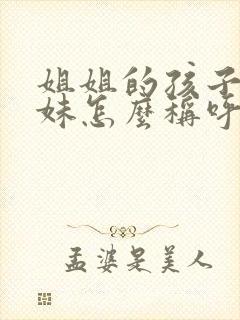 姐姐的孩子
妹怎麼稱呼
孟婆是美人